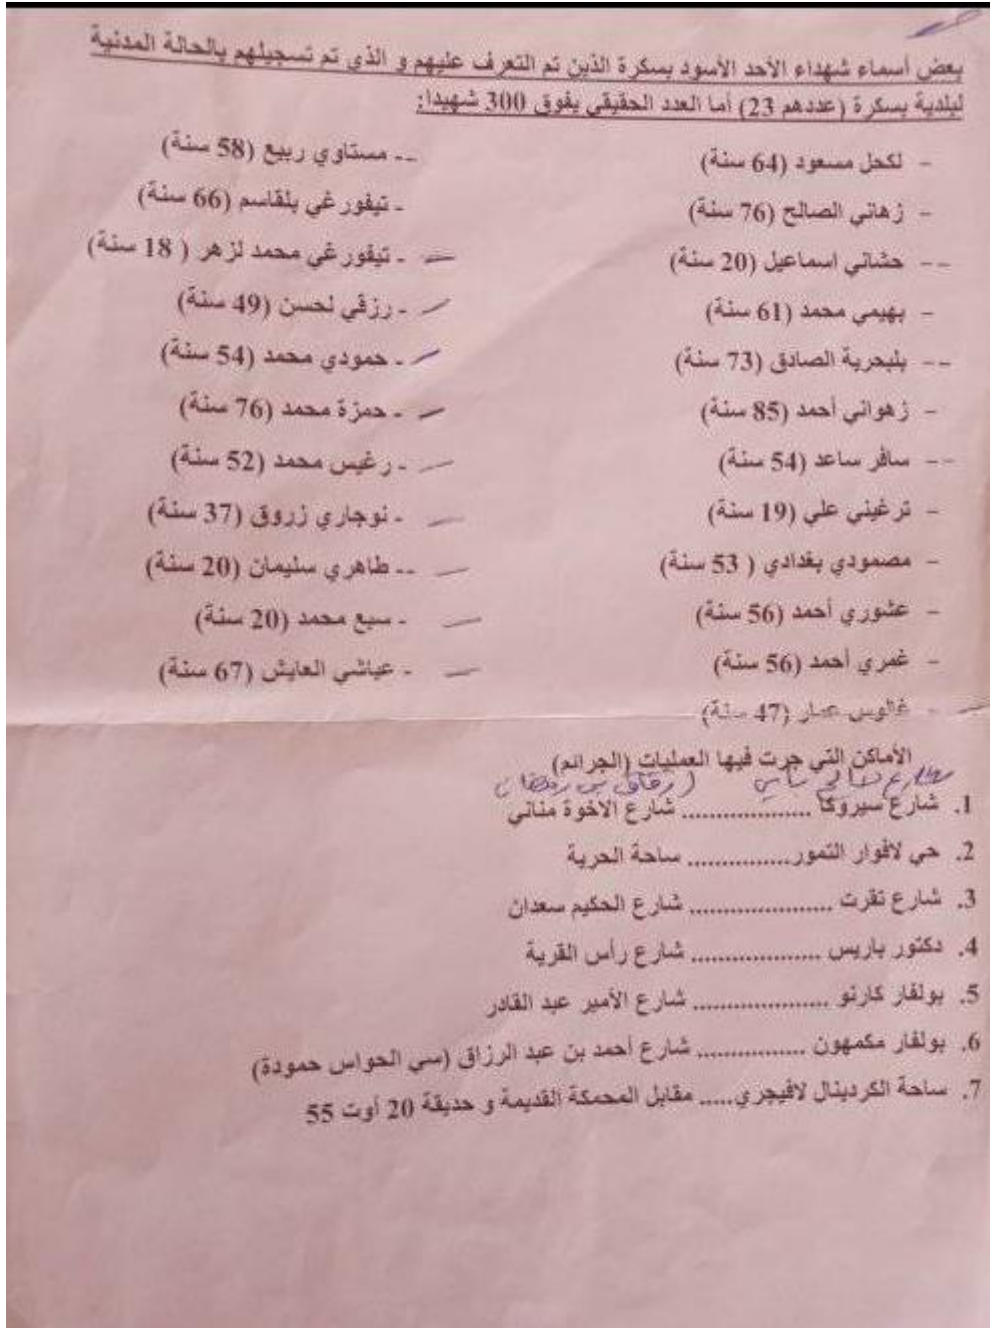 بعض أسماء شهداء الأحد الأسود ببسكرة الذين تم التعرف عليهم و الذي تم تسجيلهم بالحالة المدنية
لبلدية بسكرة (عددهم 23) أما العدد الحقيقي يفوق 300 شهيدا:
- لكحل مسعود (64 سنة)
- زهاني الصالح (76 سنة)
-- حشاني اسماعيل (20 سنة)
- بهيمي محمد (61 سنة)
-- بلبحرية الصادق (73 سنة)
- زهواني أحمد (85 سنة)
-- سافر ساعد (54 سنة)
- ترغيني علي (19 سنة)
- مصمودي بغدادي ( 53 سنة)
- عشوري أحمد (56 سنة)
- غمري أحمد (56 سنة)
- غالوس عمار (47 سنة)
-- مستاوي ربيع (58 سنة)
- تيفورغي بلقاسم (66 سنة)
- تيفورغي محمد لزهر ( 18 سنة)
- رزقي لحسن (49 سنة)
- حمودي محمد (54 سنة)
- حمزة محمد (76 سنة)
- رغيس محمد (52 سنة)
- نوجاري زروق (37 سنة)
-- طاهري سليمان (20 سنة)
- سبع محمد (20 سنة)
- عياشي العايش (67 سنة)
الأماكن التي جرت فيها العمليات (الجرائم)
شارع صالح باي (زقاق بن رمضان)
1. شارع سيروكا ................... شارع الاخوة مناني
2. حي لافوار التمور............... ساحة الحرية
3. شارع تقرت ..................... شارع الحكيم سعدان
4. دكتور باريس ................... شارع رأس القرية
5. بولفار كارنو .................... شارع الأمير عبد القادر
6. بولفار مكمهون ................ شارع أحمد بن عبد الرزاق (سي الحواس حمودة)
7. ساحة الكردينال لافيجري..... مقابل المحمكة القديمة و حديقة 20 أوت 55